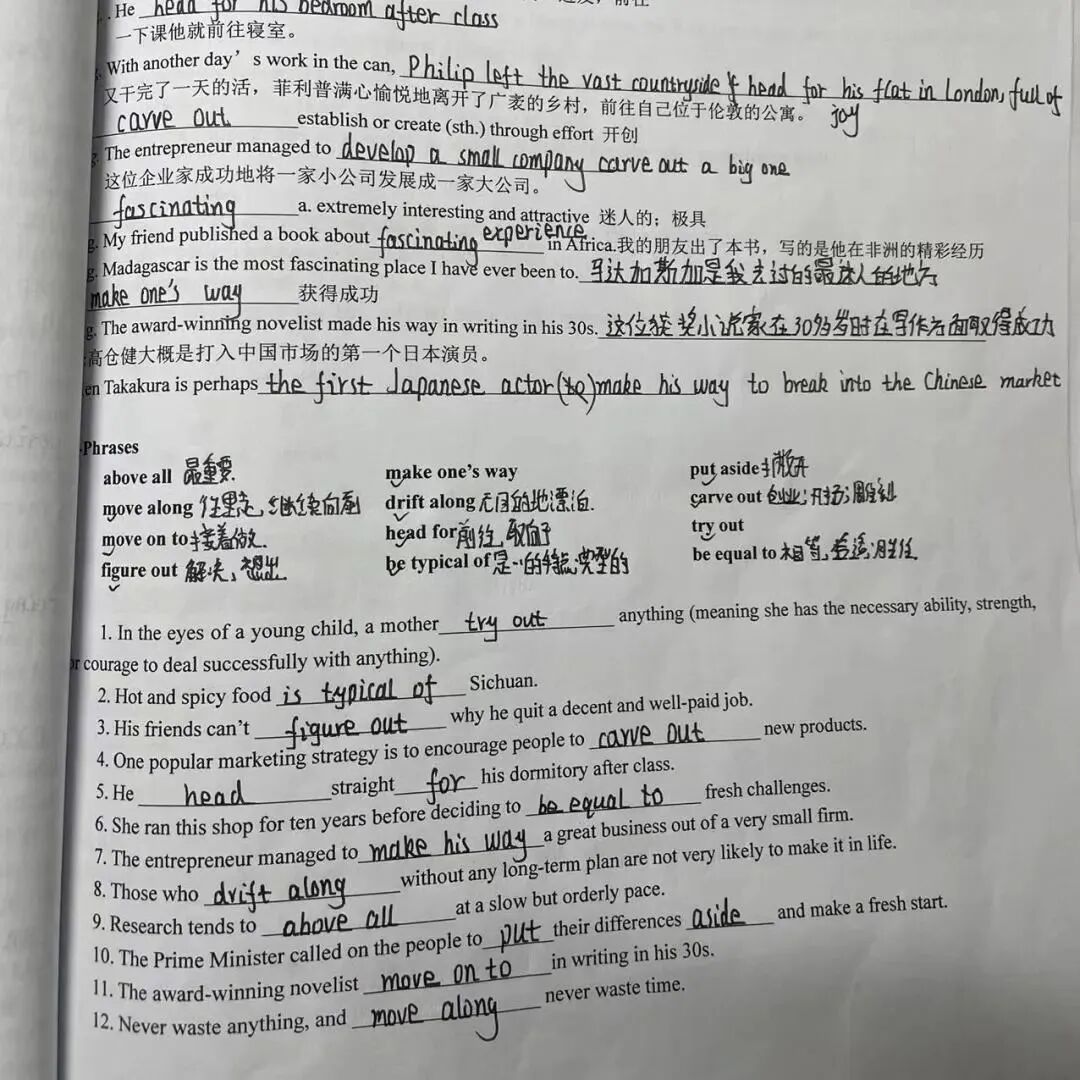 . He head for his bedroom after class
一下课他就前往寝室。
. With another day's work in the can, Philip left the vast countryside & head for his flat in London, full of joy
又干完了一天的活，菲利普满心愉悦地离开了广袤的乡村，前往自己位于伦敦的公寓。
carve out establish or create (sth.) through effort 开创
. The entrepreneur managed to develop a small company carve out a big one
这位企业家成功地将一家小公司发展成一家大公司。
fascinating a. extremely interesting and attractive 迷人的；极具
g. My friend published a book about fascinating experience in Africa.我的朋友出了本书，写的是他在非洲的精彩经历
g. Madagascar is the most fascinating place I have ever been to. 马达加斯加是我去过的最迷人的地方
make one's way 获得成功
g. The award-winning novelist made his way in writing in his 30s. 这位获奖小说家在30多岁时在写作方面取得成功
高仓健大概是打入中国市场的第一个日本演员。
en Takakura is perhaps the first Japanese actor (to) make his way to break into the Chinese market
Phrases
above all 最重要. make one's way put aside 抛开
move along 往里走, 继续向前 drift along 无目的地漂泊. carve out 创业;开拓;雕刻
move on to 接着做. head for 前往, 取向于 try out
figure out 解决, 想出 be typical of 是…的特点,典型的 be equal to 相等,合适;胜任
1. In the eyes of a young child, a mother try out anything (meaning she has the necessary ability, strength,
or courage to deal successfully with anything).
2. Hot and spicy food is typical of Sichuan.
3. His friends can't figure out why he quit a decent and well-paid job.
4. One popular marketing strategy is to encourage people to carve out new products.
5. He head straight for his dormitory after class.
6. She ran this shop for ten years before deciding to be equal to fresh challenges.
7. The entrepreneur managed to make his way a great business out of a very small firm.
8. Those who drift along without any long-term plan are not very likely to make it in life.
9. Research tends to above all at a slow but orderly pace.
10. The Prime Minister called on the people to put their differences aside and make a fresh start.
11. The award-winning novelist move on to in writing in his 30s.
12. Never waste anything, and move along never waste time.